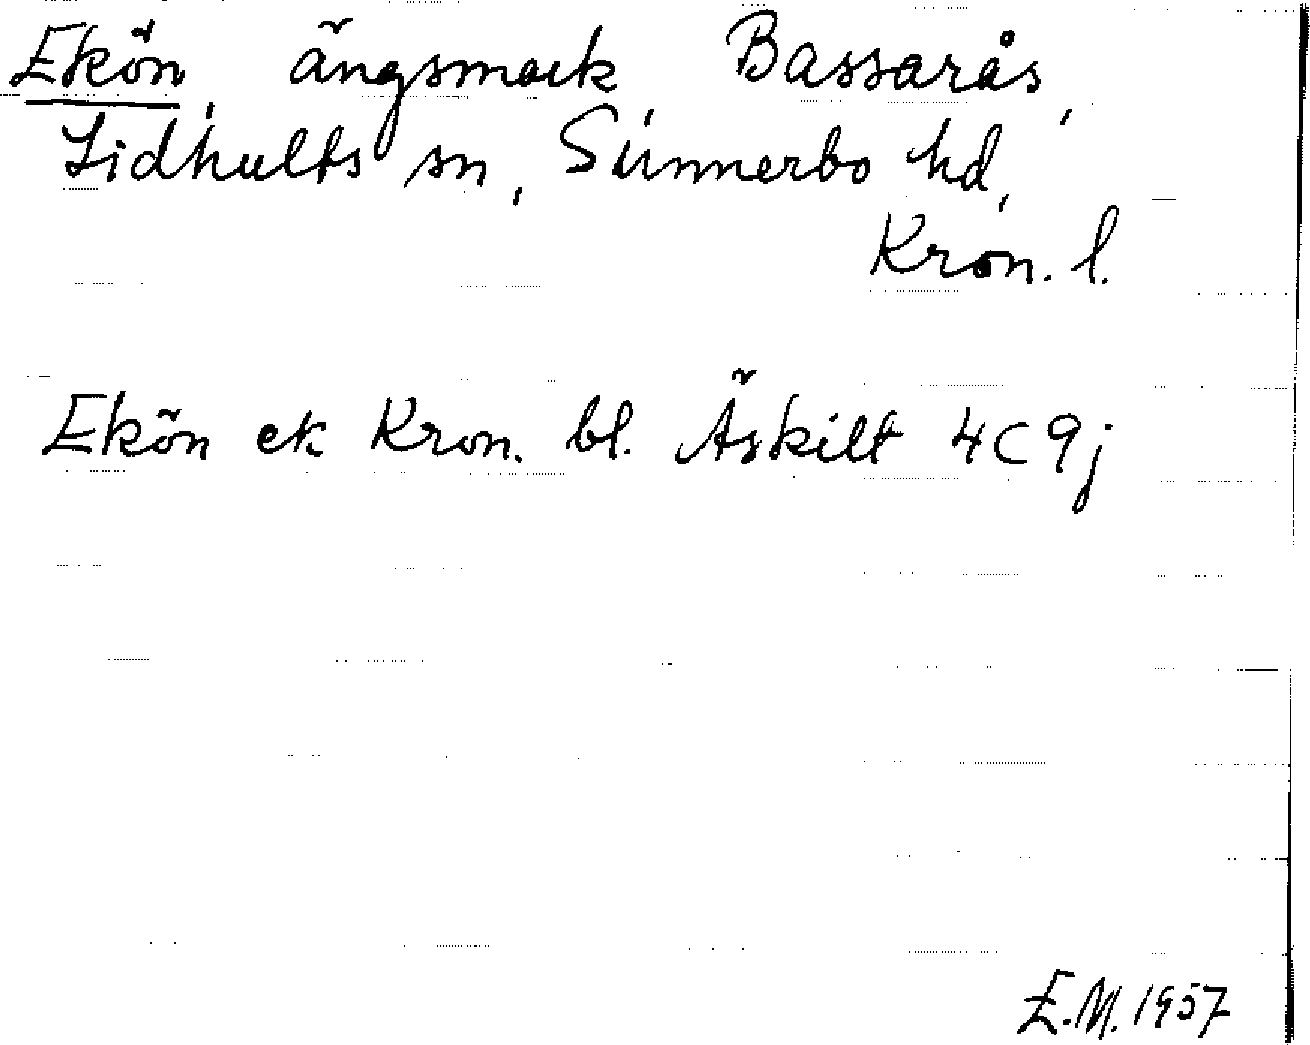 Ekön, ängsmark, Bassarås,
Lidhults sn, Sunnerbo hd,
Kron. l.
Ekön ek Kron. bl. Äskilt 4C9j
E.M. 1957